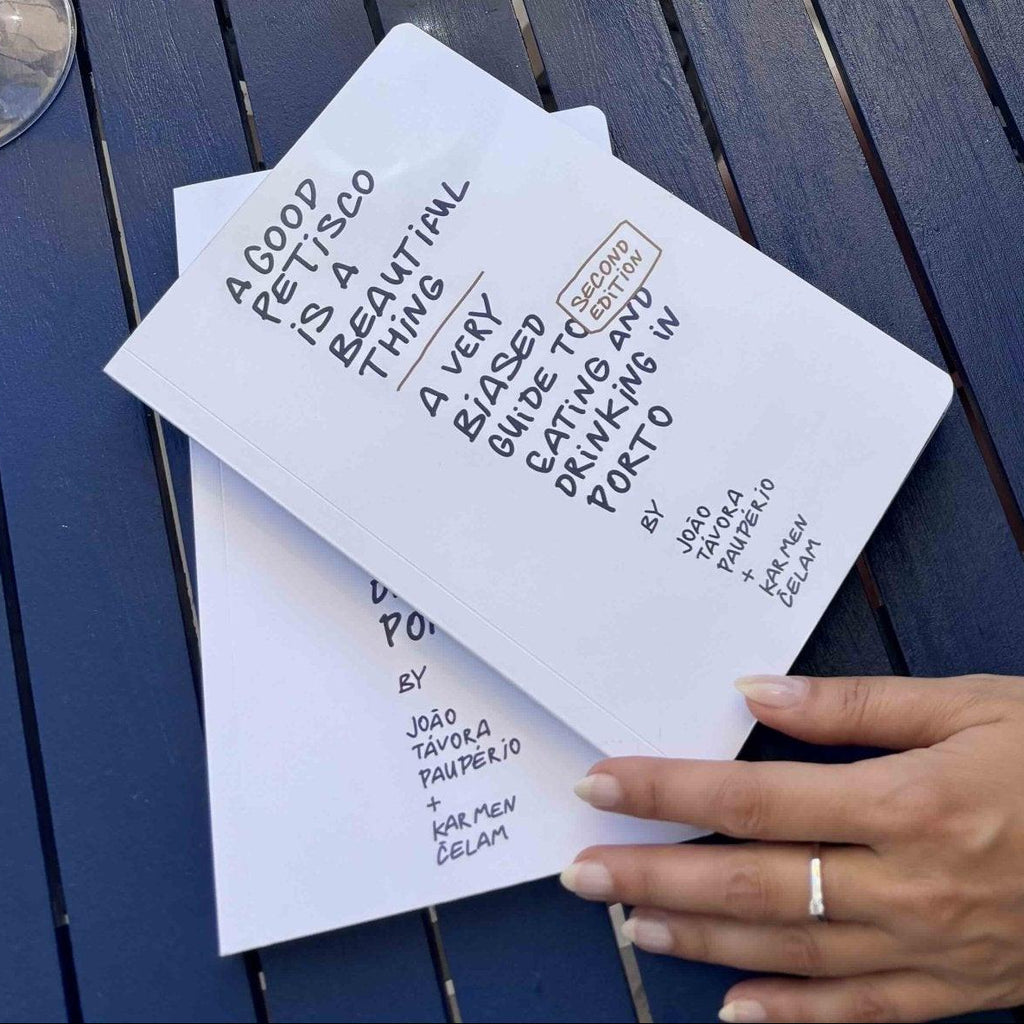 A GOOD
PETISCO
IS A
BEAUTIFUL
THING
A VERY
BIASED
GUIDE TO
EATING AND
DRINKING IN
PORTO
SECOND
EDITION
BY
JOÃO
TÁVORA
PAUPÉRIO
+
KARMEN
ČELAM
BY
JOÃO
TÁVORA
PAUPÉRIO
+
KARMEN
ČELAM